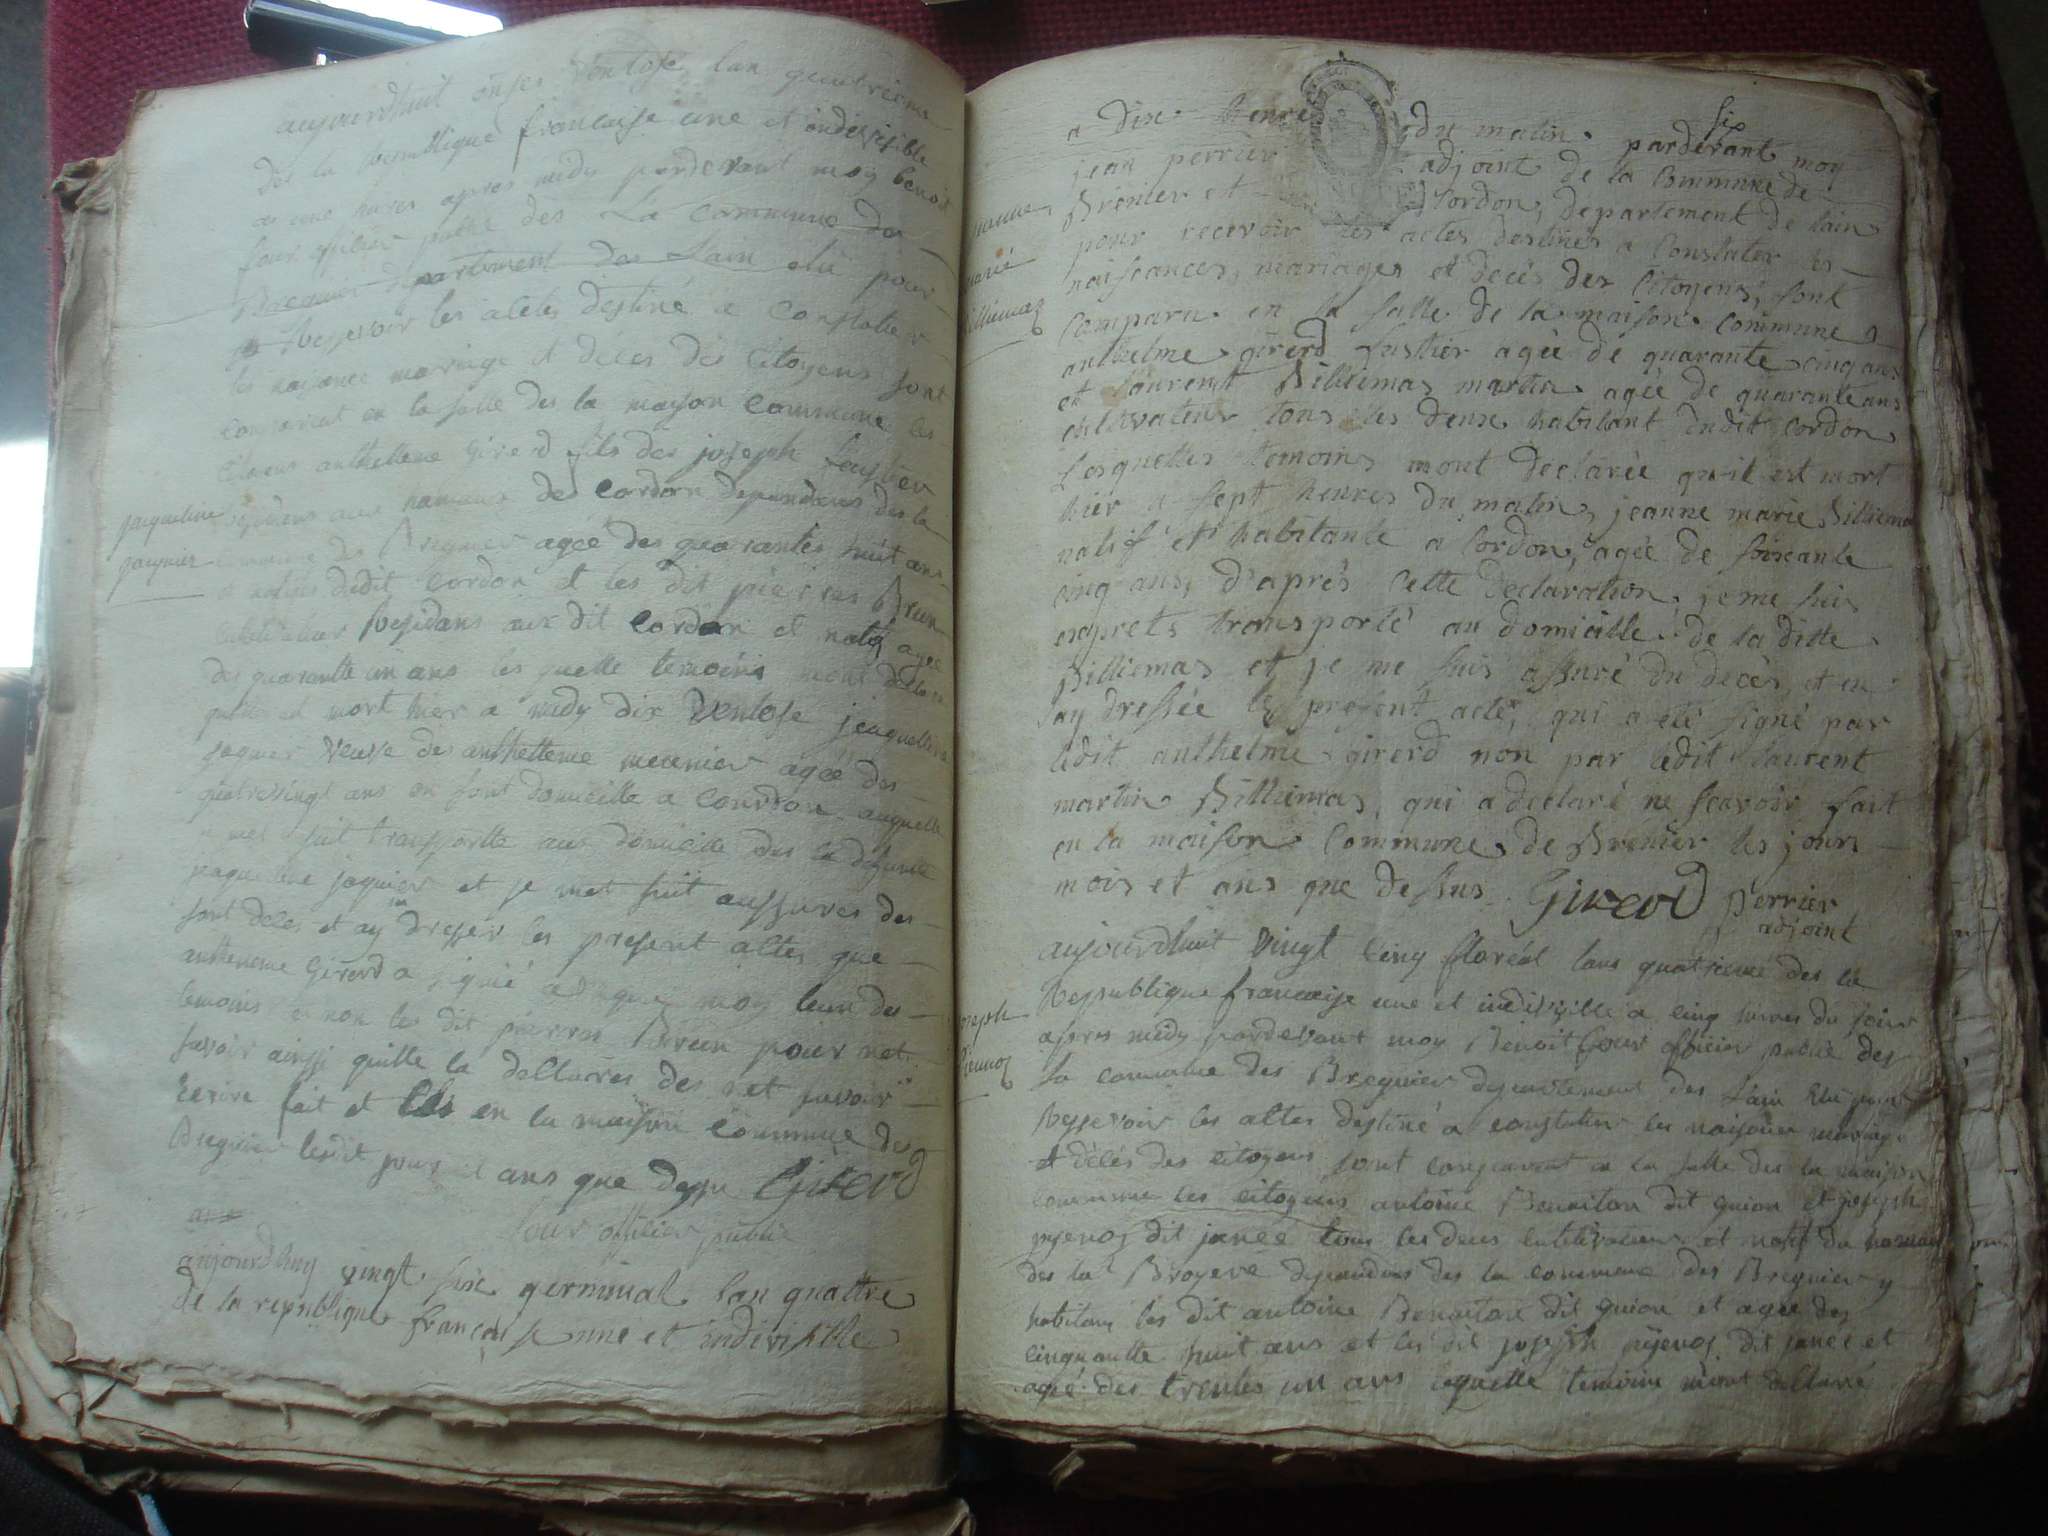 aujourdhuit onses Ventose lan quatrieme
des la Republique francaise une et indivisible
a une hures apres midy pardevant moy benoit
four officier public des La commune de
Bregnier departement des Lain elu pour
Ressevoir les actes destiné a Constater
les naissance mariage et deces des Citoyens sont
comparut en la salle des la mayson commune les
Citoiens anthelleme Girerd fils des joseph fustier
residans aux hameaux des Cordon dependens des la
commune des Bregnier agée des quarantes huit ans
et natifs dudit Cordon et les dit pierres Brun
cultivateur Residans au dit Cordon et natif agée
des quarantte un ans les quelle temoins mont declaré
quil est mort hier a midy dix Ventose jeaquelline
jaquier veuve des anthelleme mecenier agée des
quatrevingt ans en sont domicille a Courdon auquelle
je met suit transportte aux domicille des la defunte
jaqueline jaquier et je met suit aussures des
sont deles et ay dresser les present altes que
anthelleme Girerd a signié avque moy leun des
temoins et non les dit pierres Brun pour net
savoir ainssi quille la dellarres des net savoir
Ecrire fait et Clos en la maison commune des
Bregnier lesdit jours et ans que dessu Girerd
four officier public
jaqueline
jaquier
aujourdhuy vingt six germinal lan quattre
de la republique françoise une et indivisible
six
a dix heure du matin pardevant moy
jean perrier adjoint de la Commune de
Brenier et Cordon, departement de lain
pour recevoir les actes destinés a Constater les
naissances, mariages et decès des Citoyens, sont
Comparu en la salle de la maison commune
anthelme girerd fustier agée de quarante cinq ans
et Laurent Billiemas martin agée de quarante ans
cultivateur tous les deux habitant dudit Cordon
Lesquelles temoins mont declarée qu-il est mort
hier a sept heures du matin, jeanne marie Billiemas
natif et habitante a Cordon, agée de soixante
cinq ans, d'aprés Cette declaration, je me suis
exprets transporté au domicille de la ditte
Billiemas et je me suis assuré du decès, et en
ay dressée le present acte, qui a eté signé par
ledit anthelme girerd non par ledit Laurent
martin Billiemas, qui a declaré ne scavoir fait
en la maison Commune de Brenier les jours
mois et ans que dessus Girerd perrier
adjoint
jeanne
marie
Billiemaz
aujourdhuit vingt cinq floréal lans quatrieme des la
Republique francaise une et indivisible a cinq hures du soir
apres midy pardevant moy Benoit four officier public des
la commune des Bregnier departement des Lain Elu pour
Ressevoir les altes destiné a constatter les naissance mariage
et délés des citoyens sont comparut a la salle des la maison
commune les citoyens antoine Benoiton dit guion et joseph
dit janée tous les deus culltivateur et natif du hamau
des la Broyere dependens des la commune des Bregnier y
habitans les dit antoine Benoiton dit guion et agée des
cinquantte huit ans et les dit joseph dit janée et
agée des trentes un ans lequelle temoins mont dellaré
joseph